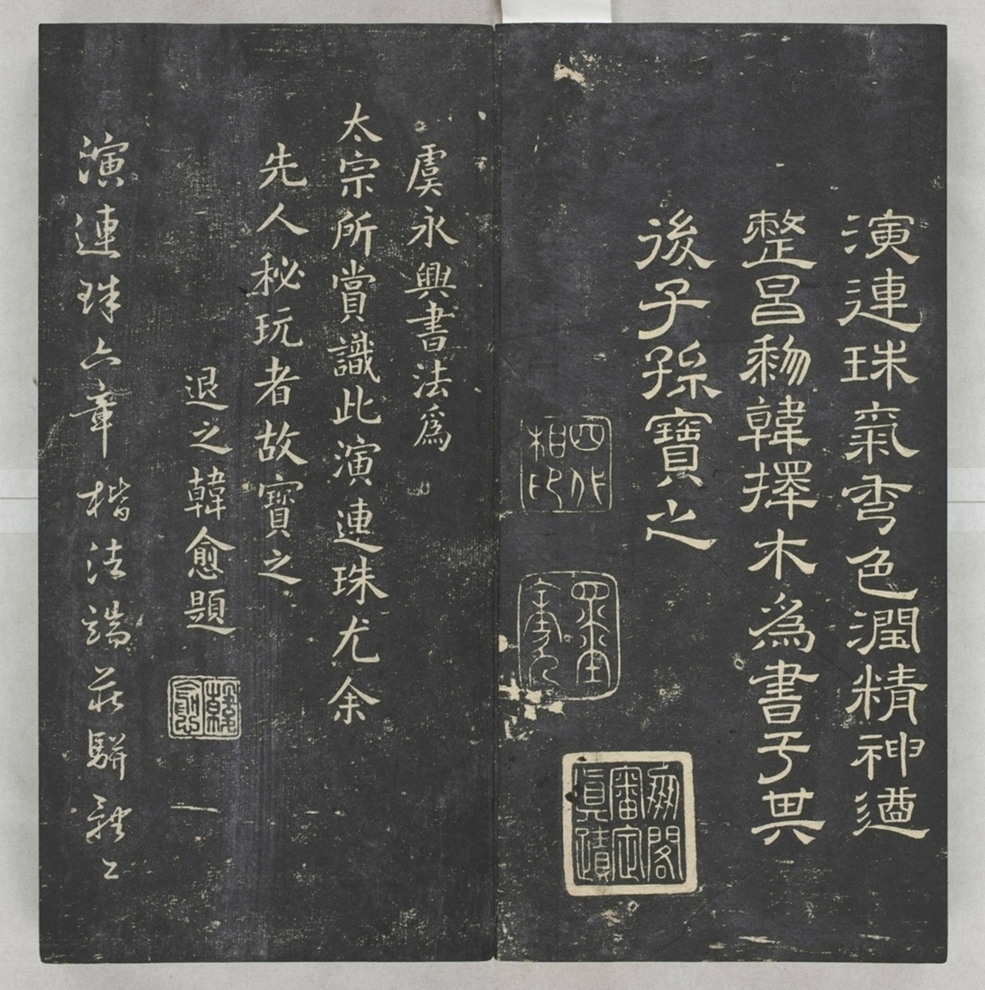 演連珠氣秀色潤精神遒
整昌黎韓擇木為書于其
後子孫寶之
四代相印
閣審定真蹟
虞永興書法為
太宗所賞識此演連珠尤余
先人秘玩者故寶之
退之韓愈題
韓愈
演連珠六章楷法端莊